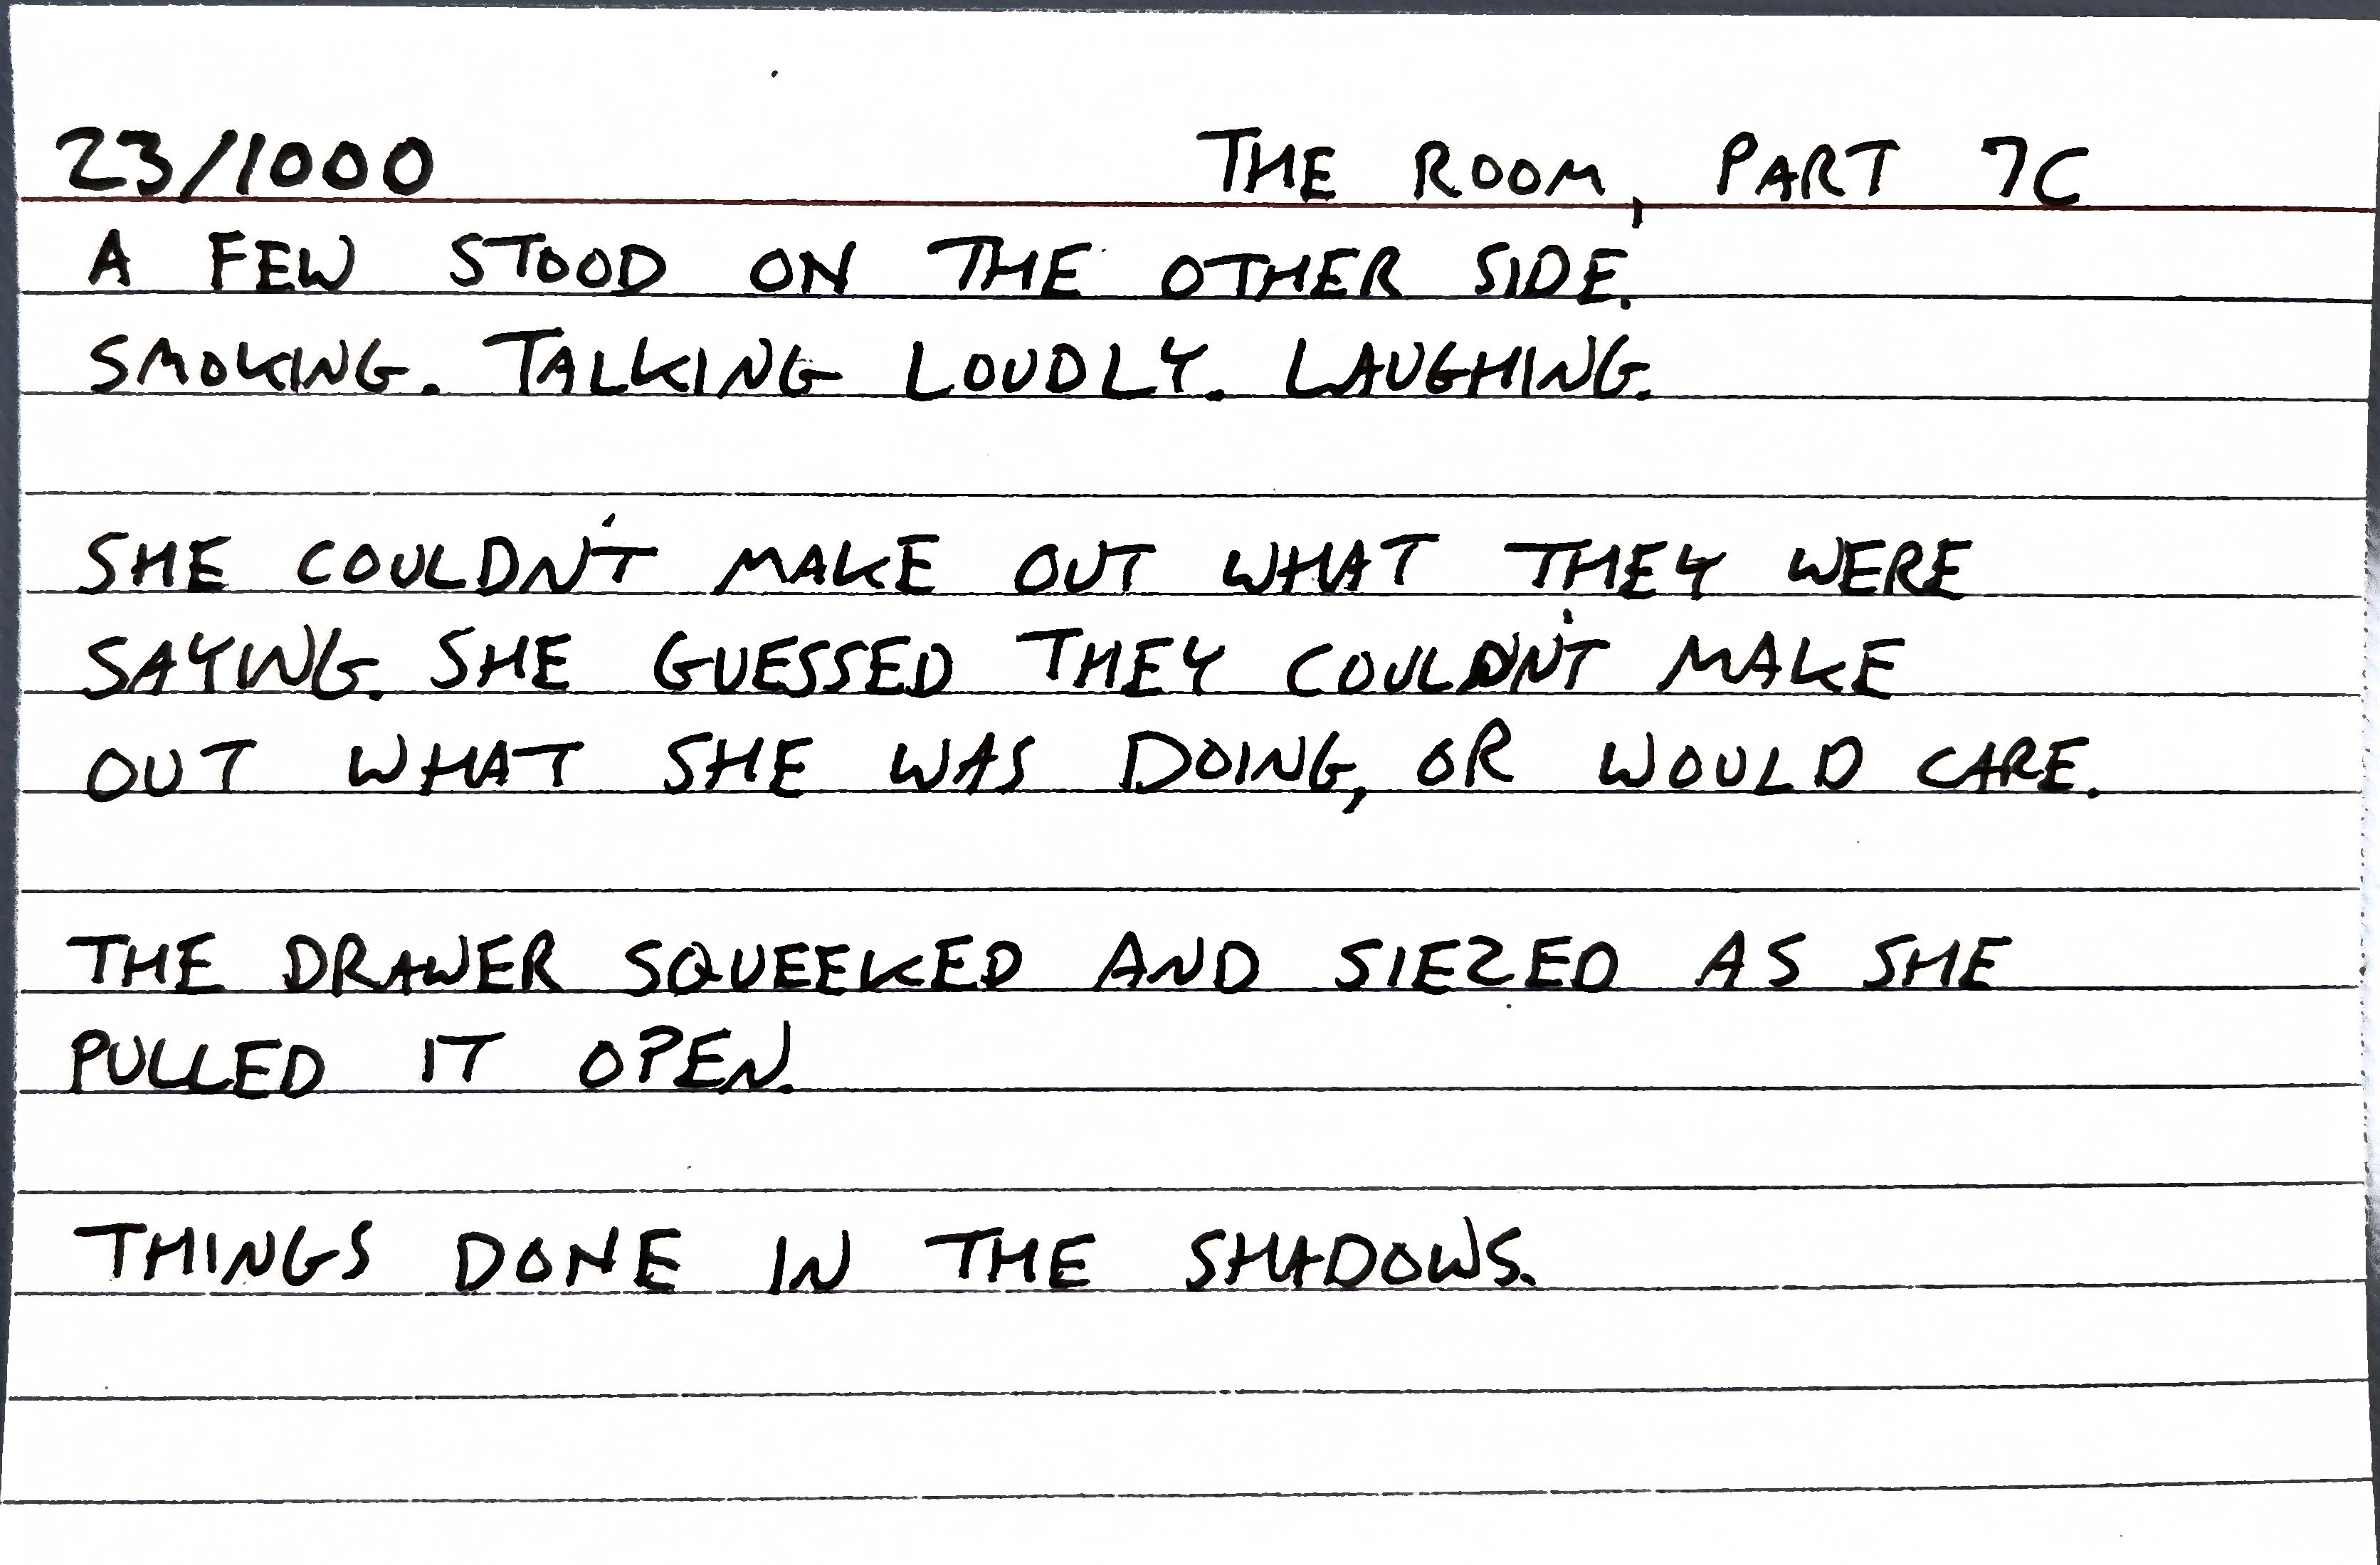 23/1000 THE ROOM, PART 7C
A FEW STOOD ON THE OTHER SIDE.
SMOKING. TALKING LOUDLY. LAUGHING.
SHE COULDN'T MAKE OUT WHAT THEY WERE
SAYING. SHE GUESSED THEY COULDN'T MAKE
OUT WHAT SHE WAS DOING, OR WOULD CARE.
THE DRAWER SQUEEKED AND SIEZED AS SHE
PULLED IT OPEN.
THINGS DONE IN THE SHADOWS.